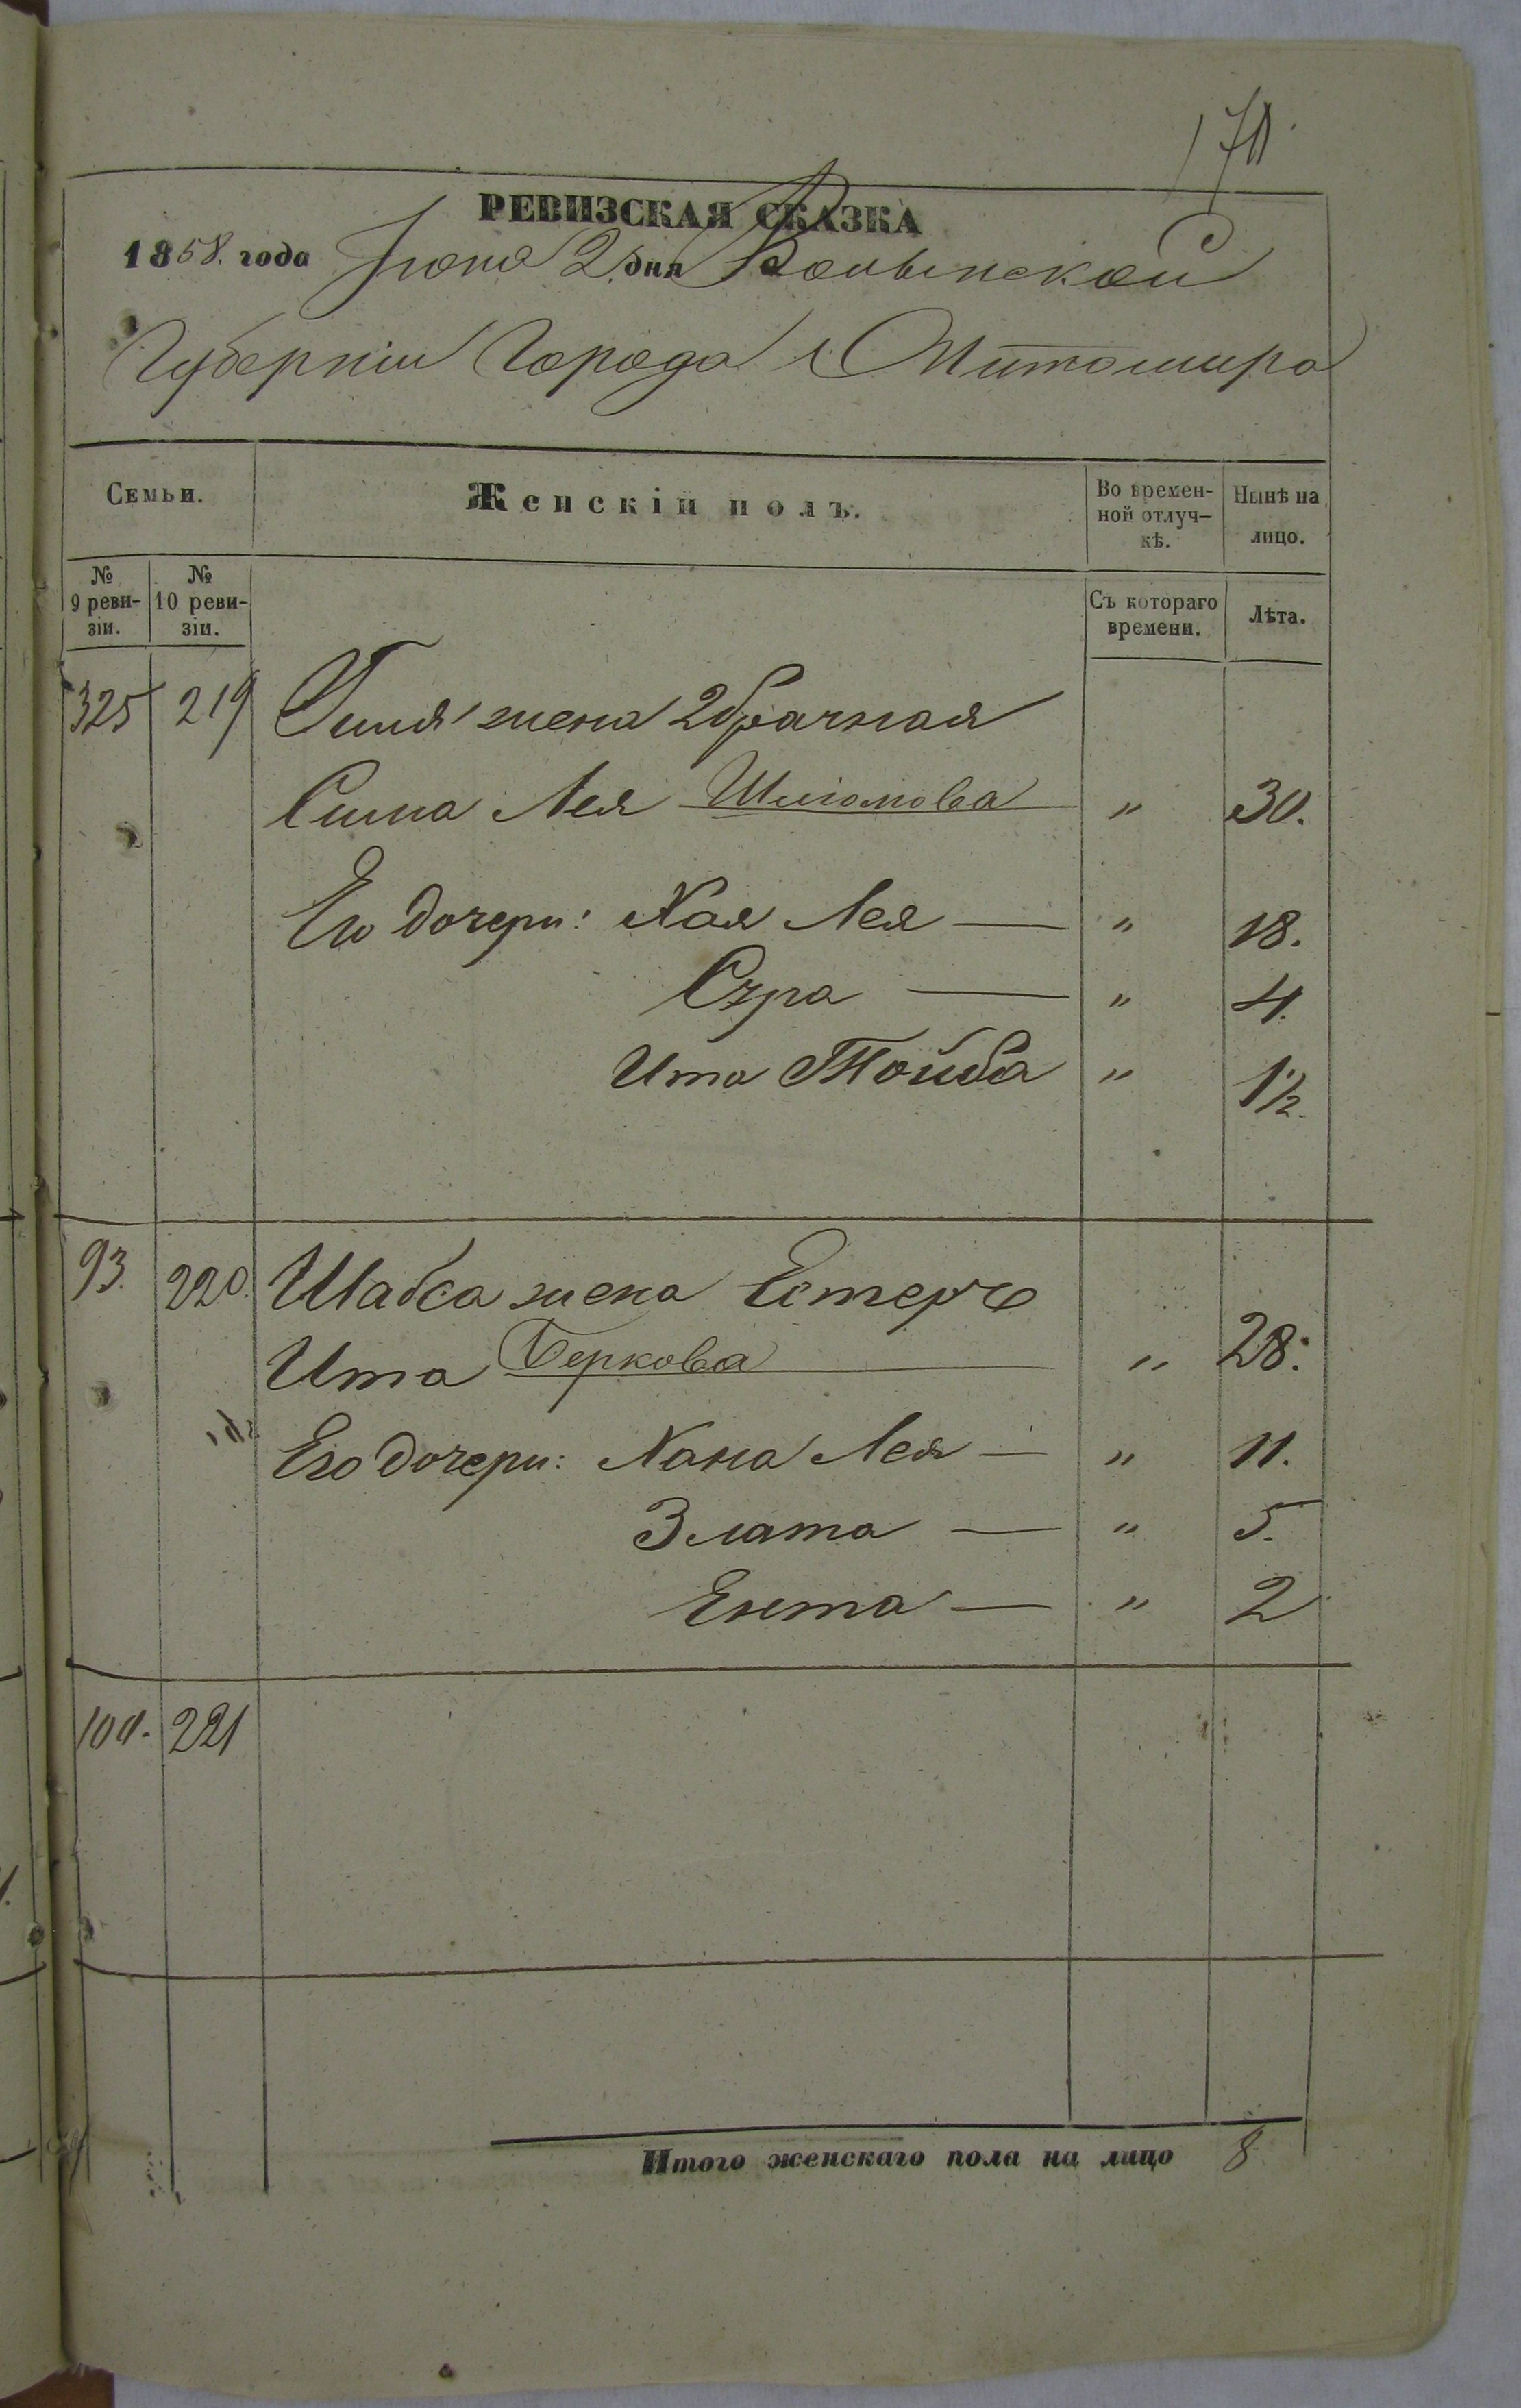 РЕВИЗСКАЯ СКАЗКА
1858. года Іюня 2 дня Волынской
Губерніи Города Житомира
Семьи.
Женскій полъ.
Во времен-
ной отлуч-
кѣ.
Нынѣ на
лицо.
№
9 реви-
зіи.
№
10 реви-
зіи.
Съ котораго
времени.
Лѣта.
325 219 жена 2брачная
Сима Лея Шліомова " 30.
Его дочери: Хая Лея — " 18.
Сура — " 4.
Ита Тойба " 1½.
93. 220. Шабса жена Естеръ
Ита Беркова " 28.
Его дочери: Хана Лея — " 11.
Злата — " 5.
Ента — " 2
221
Итого женскаго пола на лицо 8